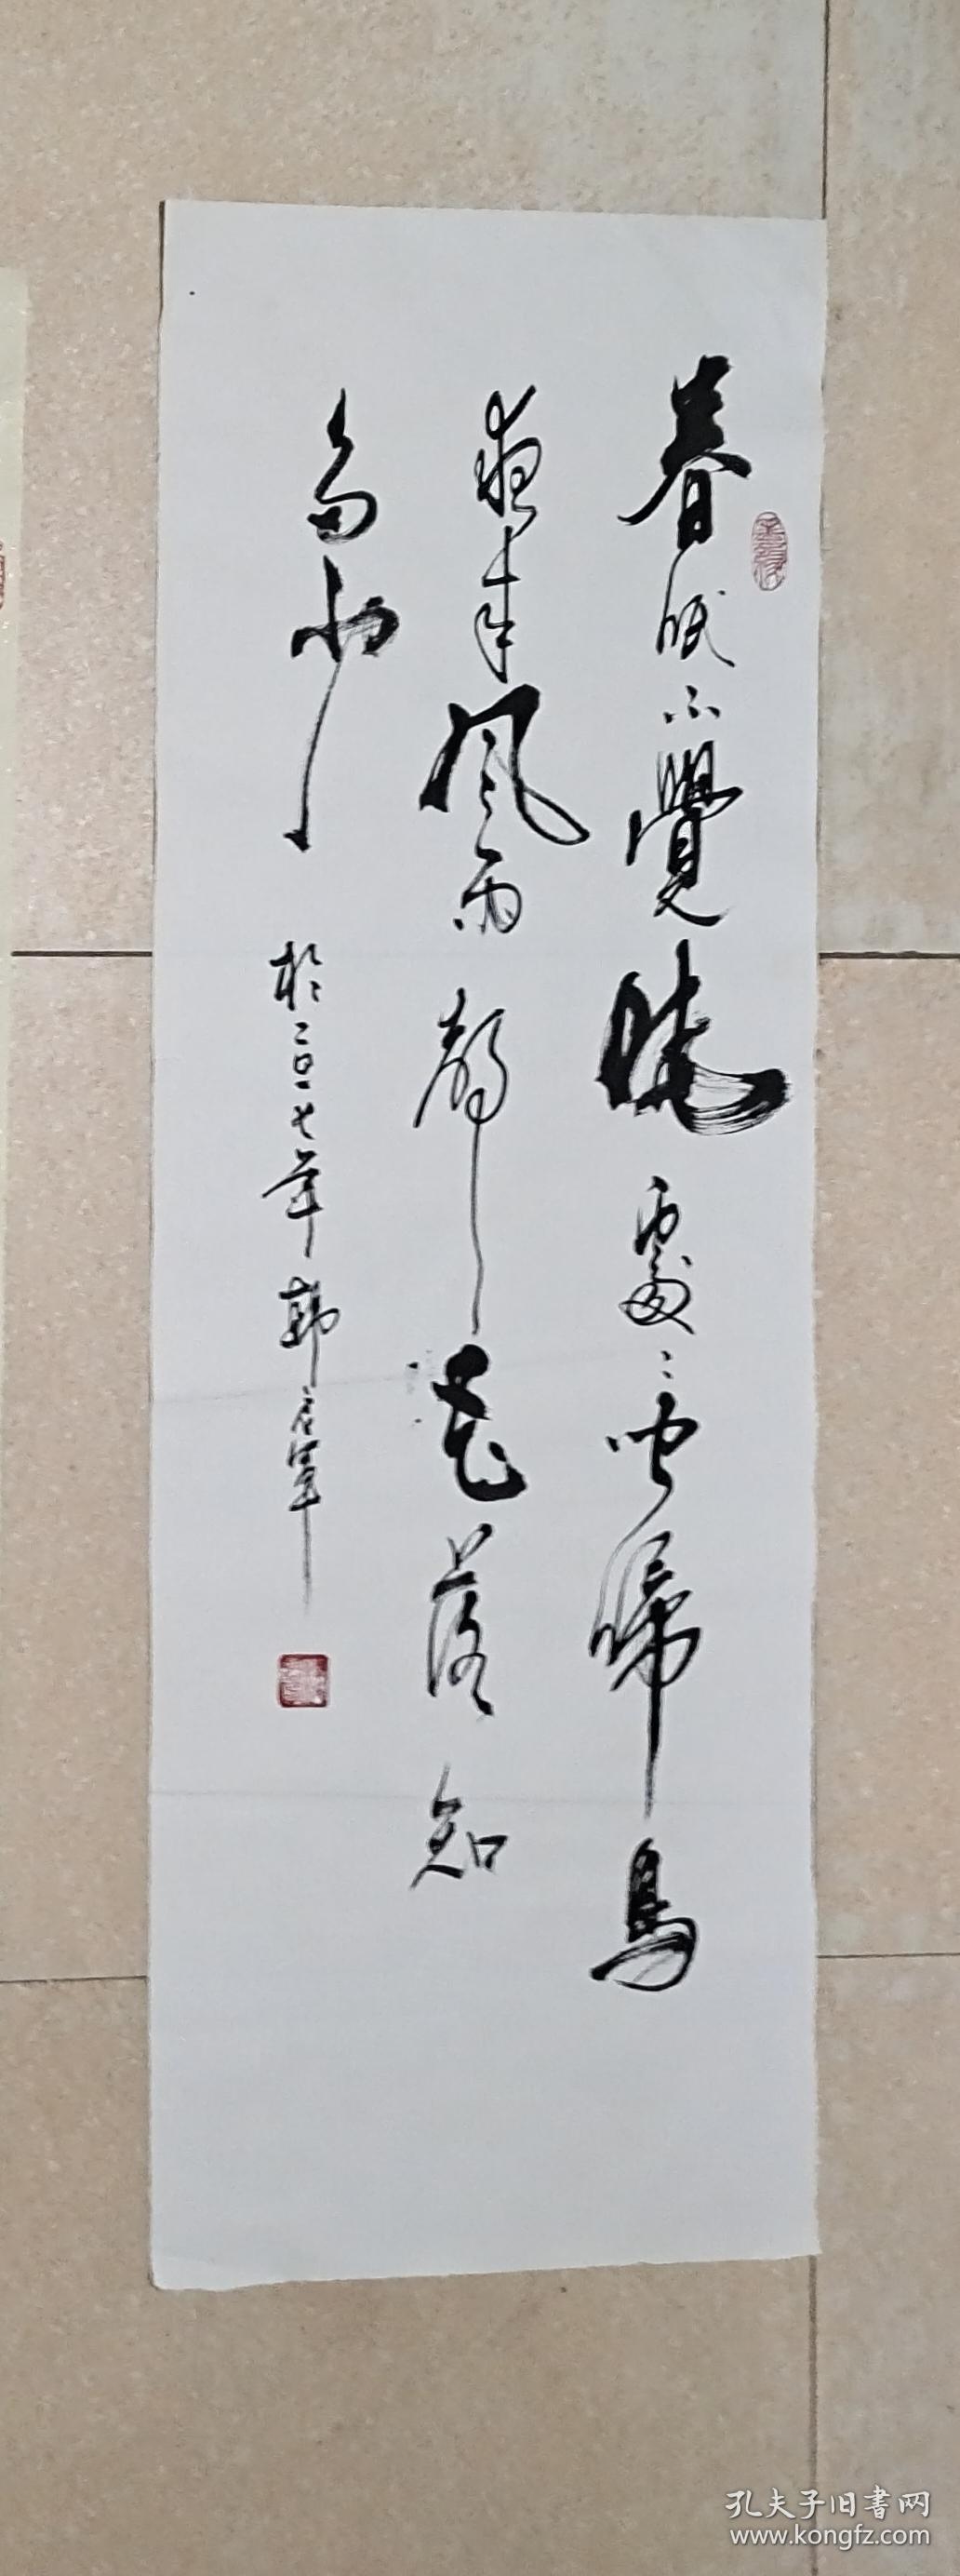 春眠不覺曉處〻聞啼鳥
夜来風雨聲花落知
多少
於二〇一七年韩启军
孔夫子旧書网
www.kongfz.com